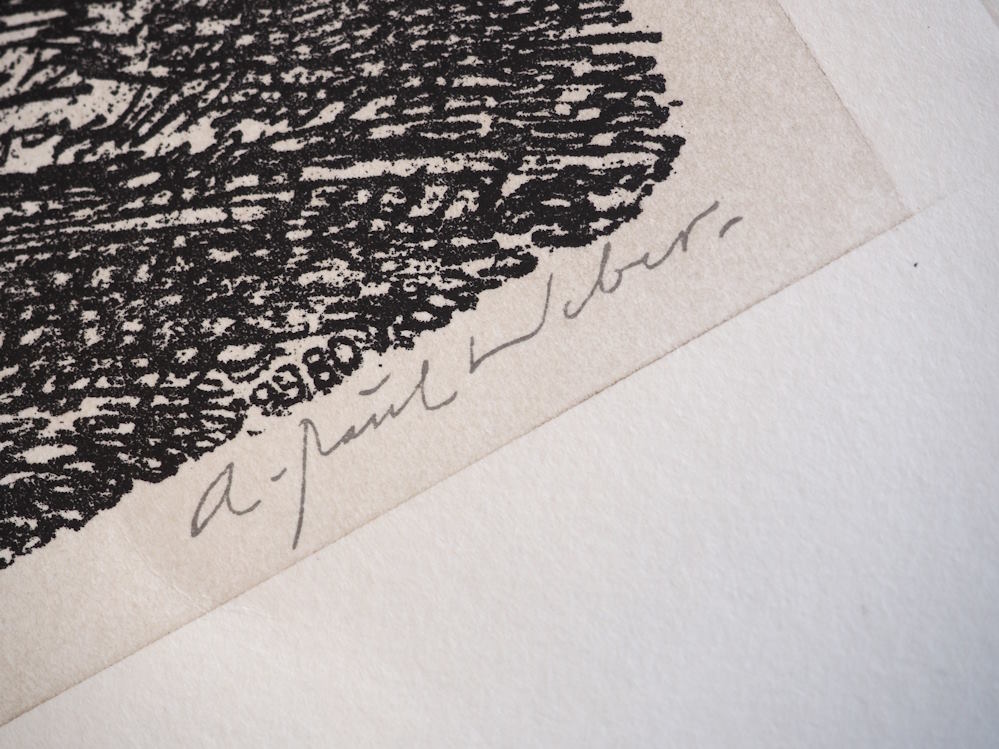 1980
a. paul weber.